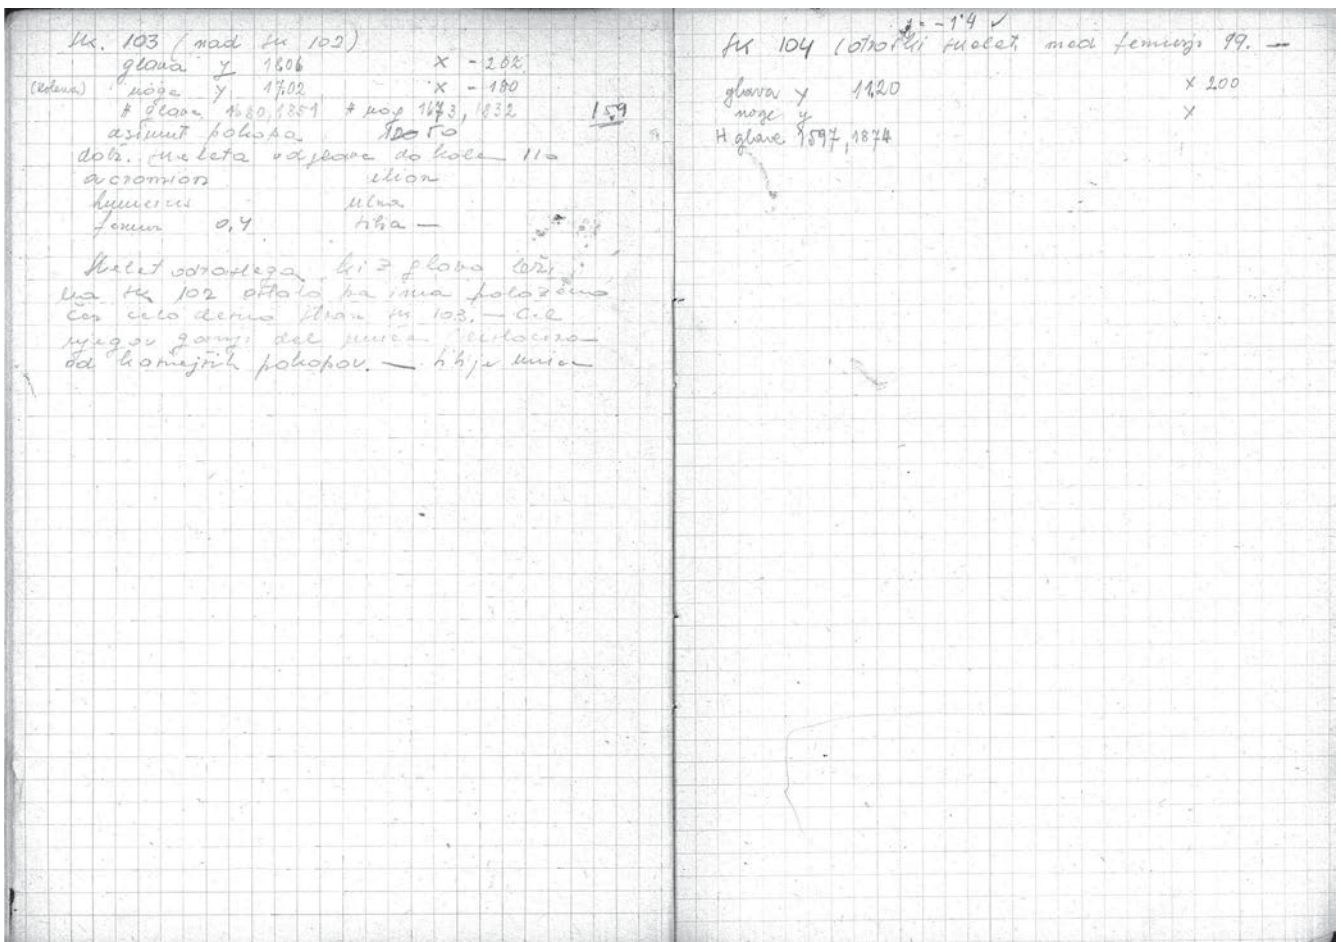 Sk. 103 (nad sk 102)
glava y 1806 x - 202
(kolena) noge y 17.02 x - 180
H glava 1680, 1851 H nog 1673, 1832 159
azimut pokopa 50
dolž. skeleta od glave do kolen 110
acromion ilion
humerus ulna
femur 0,4 tibia —
Skelet odraslega ki z glavo leži
na sk 102 ostalo pa ima položeno
čez celo desno stran sk 103. — Cel
njegov gornji del uničen
od kasnejših pokopov. —
z = -1.4 ✓
sk 104 (otroški skelet med femurji 99. —
glava y 11.20 x 200
noge y x
H glave 1597, 1874